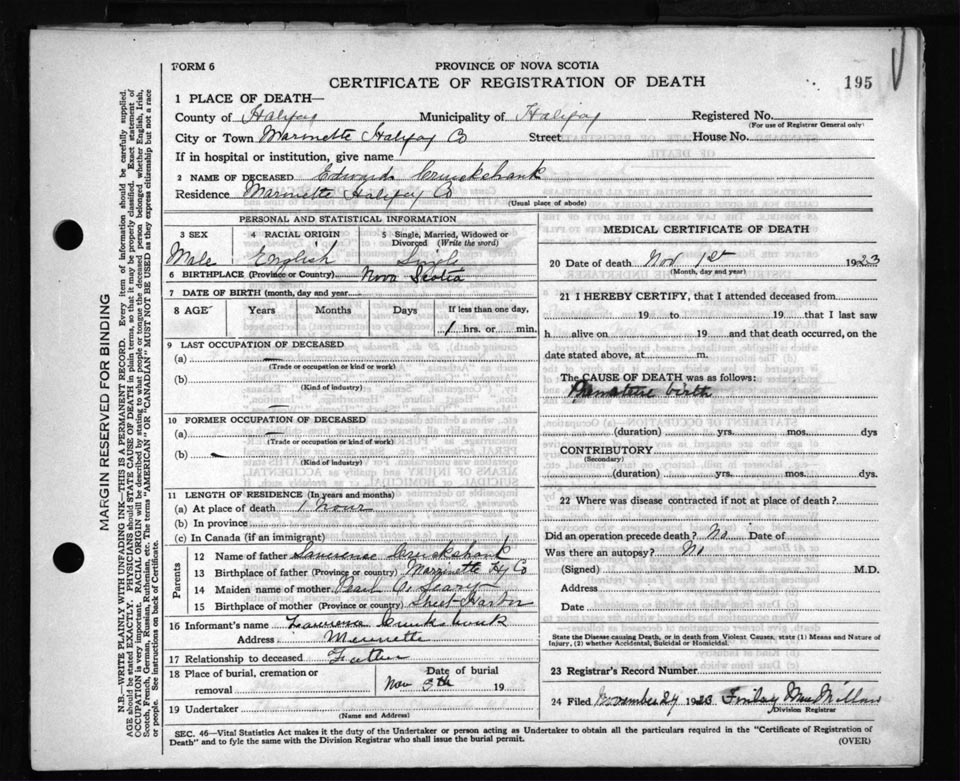 FORM 6
PROVINCE OF NOVA SCOTIA
CERTIFICATE OF REGISTRATION OF DEATH
195
1 PLACE OF DEATH—
County of Halifax Municipality of Halifax Registered No.
(For use of Registrar General only)
City or Town Marinette Halifax Co Street House No.
If in hospital or institution, give name
2 NAME OF DECEASED Edward Cruickshank
Residence Marinette Halifax Co
(Usual place of abode)
PERSONAL AND STATISTICAL INFORMATION
3 SEX 4 RACIAL ORIGIN 5 Single, Married, Widowed or Divorced (Write the word)
Male English Single
6 BIRTHPLACE (Province or Country) Nova Scotia
7 DATE OF BIRTH (month, day and year)
8 AGE Years Months Days If less than one day,
1 hrs. or min.
9 LAST OCCUPATION OF DECEASED
(a) —
(Trade or occupation or kind or work)
(b)
(Kind of industry)
10 FORMER OCCUPATION OF DECEASED
(a) —
(Trade or occupation or kind of work)
(b) —
(Kind of industry)
11 LENGTH OF RESIDENCE (In years and months)
(a) At place of death 1 hour
(b) In province
(c) In Canada (if an immigrant)
Parents
12 Name of father Laurence Cruickshank
13 Birthplace of father (Province or country) Marinette Hx Co
14 Maiden name of mother Pearl
15 Birthplace of mother (Province or country) Sheet Harbor
16 Informant's name Laurence Cruickshank
Address Marinette
17 Relationship to deceased Father
18 Place of burial, cremation or removal
Date of burial
Nov 19
19 Undertaker
(Name and Address)
MEDICAL CERTIFICATE OF DEATH
20 Date of death Nov 1st 1923
(Month, day and year)
21 I HEREBY CERTIFY, that I attended deceased from
19 to 19 that I last saw
h alive on 19 and that death occurred, on the
date stated above, at m.
The CAUSE OF DEATH was as follows:
Premature birth
(duration) yrs. mos. dys
CONTRIBUTORY
(Secondary)
(duration) yrs. mos. dys.
22 Where was disease contracted if not at place of death?
Did an operation precede death? No Date of
Was there an autopsy? No
(Signed) M.D.
Address
Date
State the Disease causing Death, or in death from Violent Causes, state (1) Means and Nature of
Injury, (2) whether Accidental, Suicidal or Homicidal.
23 Registrar's Record Number
24 Filed November 27 1923 Finlay MacMillan
Division Registrar
SEC. 46—Vital Statistics Act makes it the duty of the Undertaker or person acting as Undertaker to obtain all the particulars required in the "Certificate of Registration of
Death" and to fyle the same with the Division Registrar who shall issue the burial permit.
(OVER)
MARGIN RESERVED FOR BINDING
N.B.—WRITE PLAINLY WITH UNFADING INK—THIS IS A PERMANENT RECORD. Every item of information should be carefully supplied.
AGE should be stated EXACTLY. PHYSICIANS should STATE CAUSE OF DEATH in plain terms, so that it may be properly classified. Exact statement of
OCCUPATION is very important. RACIAL ORIGIN will be described by stating to what people or tongue the deceased person belonged whether English, Irish,
Scotch, French, German, Russian, Ruthenian, etc. The terms "AMERICAN" OR "CANADIAN" MUST NOT BE USED as they express citizenship but not a race
or people. See instructions on back of Certificate.